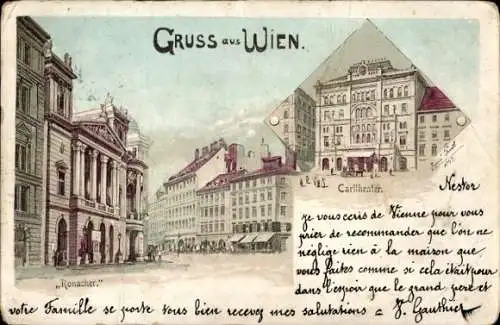 GRUSS aus WIEN.
Carltheater.
„Ronacher."
Nestor
je vous ecris de Vienne pour vous
prier de recommander que l'on ne
néglige rien à la maison que
vous faites comme si cela était pour
dans l'espoir que le grand père et
votre Famille se porte tous bien recevez mes salutations J. Gauthier